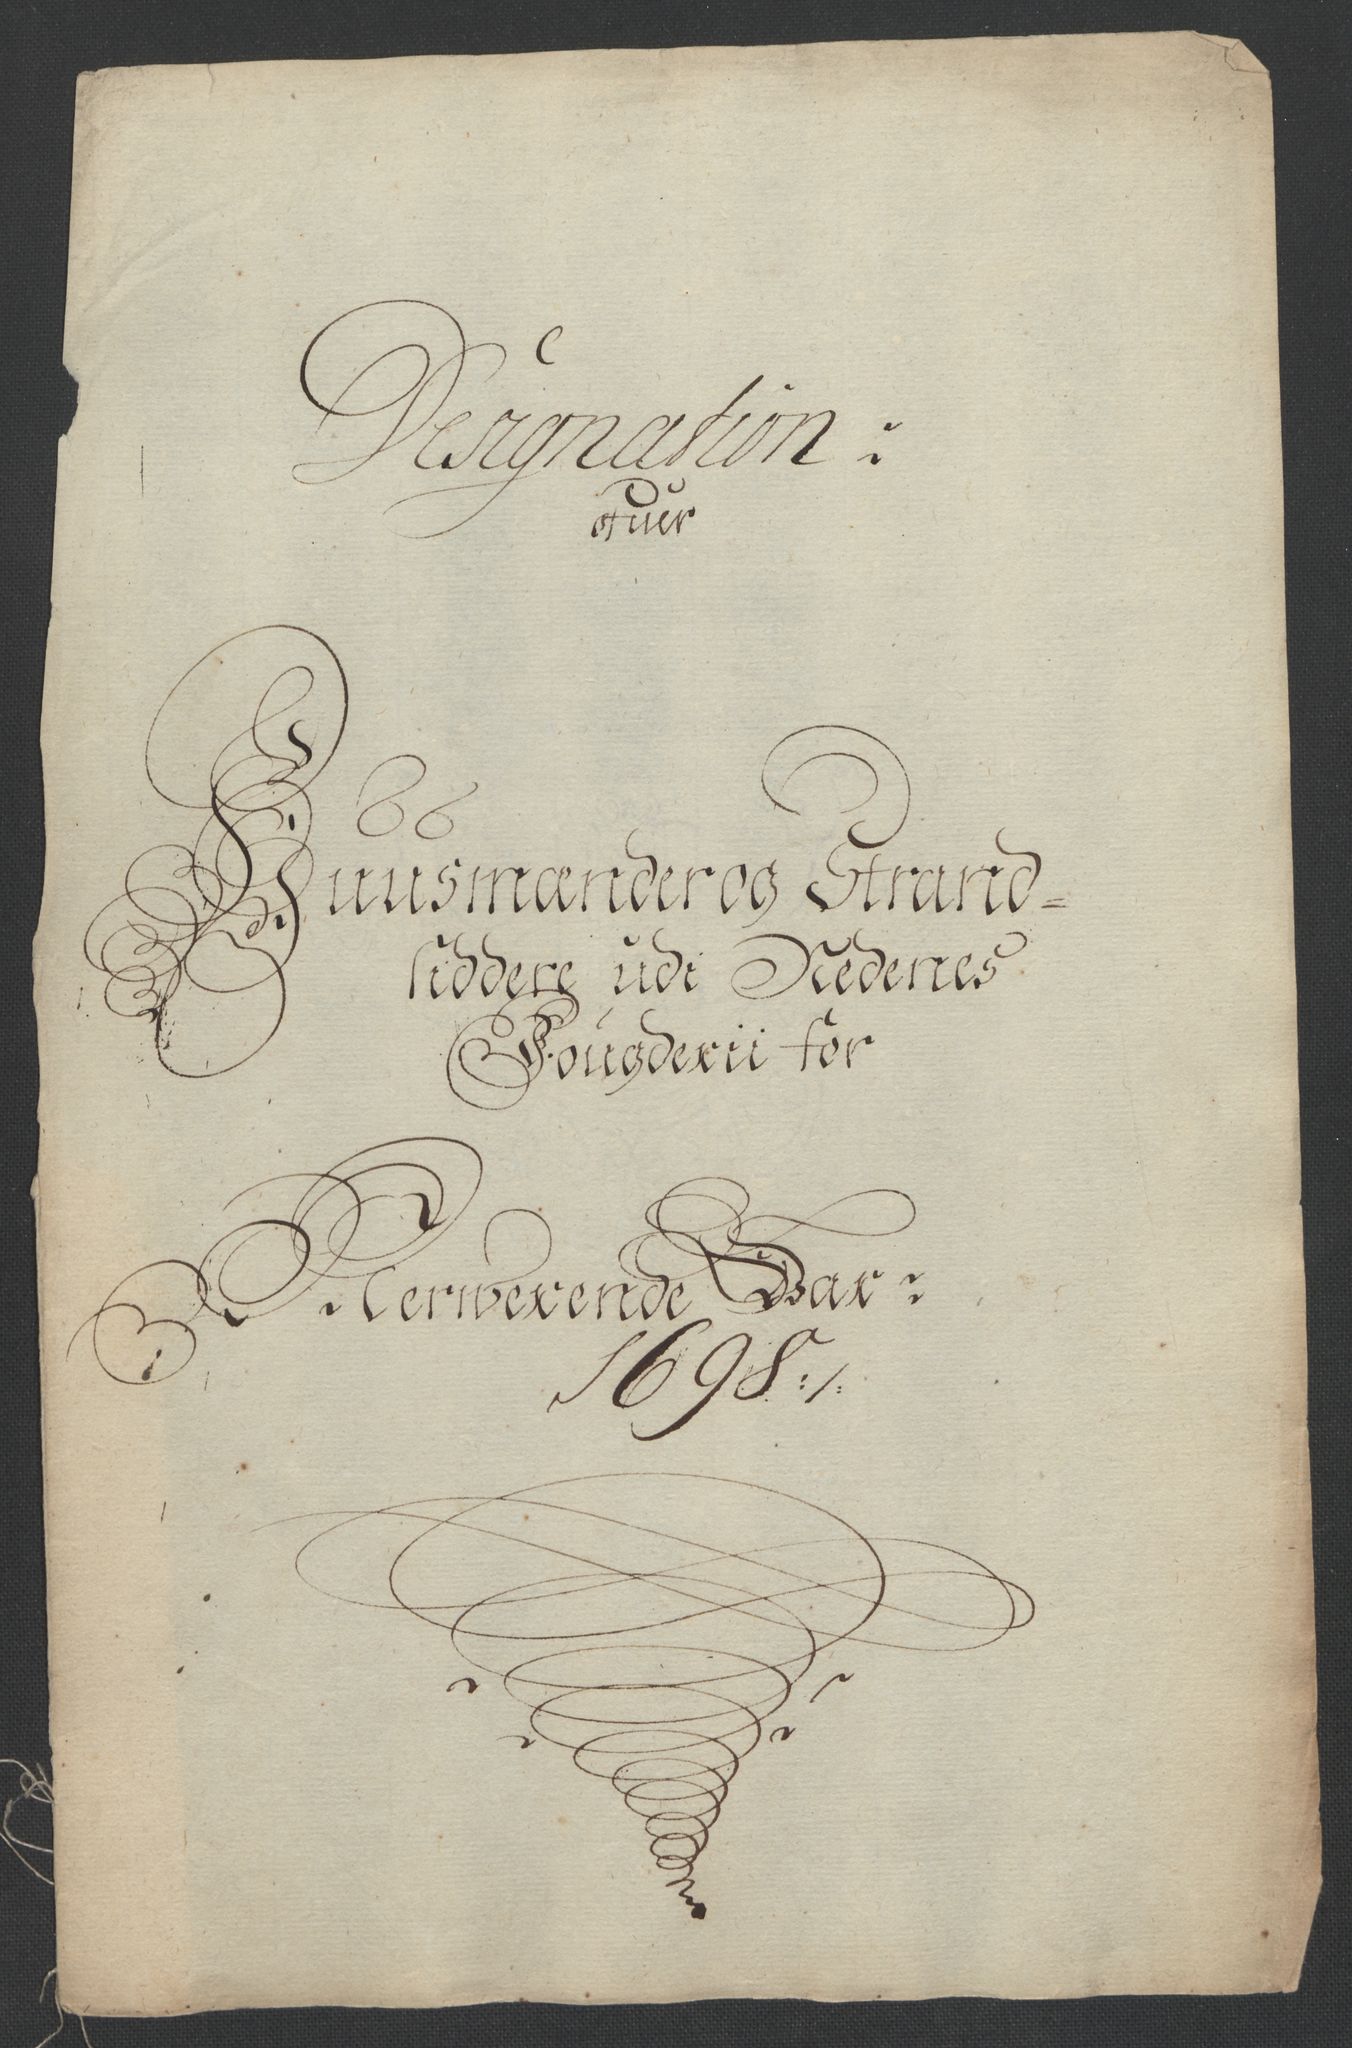 Designation:
ofuer
Huusmænder og Strand=
siddere udi Nedenes
Fougderii for
Nerwerende Aar:
1698:/: